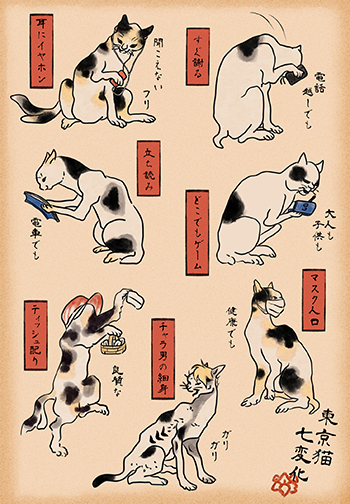 耳にイヤホン
聞こえない
フリ
すぐ謝る
電話
越しでも
立ち読み
電車でも
どこでもゲーム
大人も
子供も
ティッシュ配り
良質な
チャラ男の細身
ガリ
ガリ
マスク人口
健康でも
東京猫
七変化